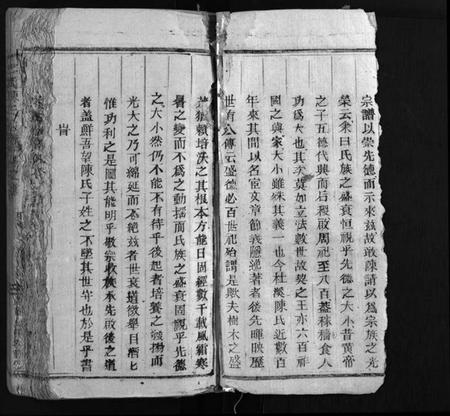 宗譜以崇先德而示來茲故敢陳請以爲宗族之光
榮云余曰氏族之盛衰恒視乎先德之大小昔黃帝
之子五德代興而后稷啟周祀至八百蓋稼穡食人
功爲大也其次莫如立法敎世故契之王亦六百祀
國之與家大小雖殊其義一也今杜溪陳氏近數百
年來其間以名宦文章節義隱逸著者後先輝映歷
世有公傳云盛德必百世祀殆謂是歟夫樹木之盛
茂猶賴培沃之其根本方能日固經數千載風霜寒
暑之變而不爲之動搖而氏族之盛衰固視乎先德
之大小然仍不能不有待乎後起者培養之發揚而
光大之乃可綿延而不絕茲者世衰道微舉目滔滔
惟功利之是圖其能明乎敬宗收族承先啟後之道
者蓋鮮吾望陳氏子姓之不墜其世守也於是乎書